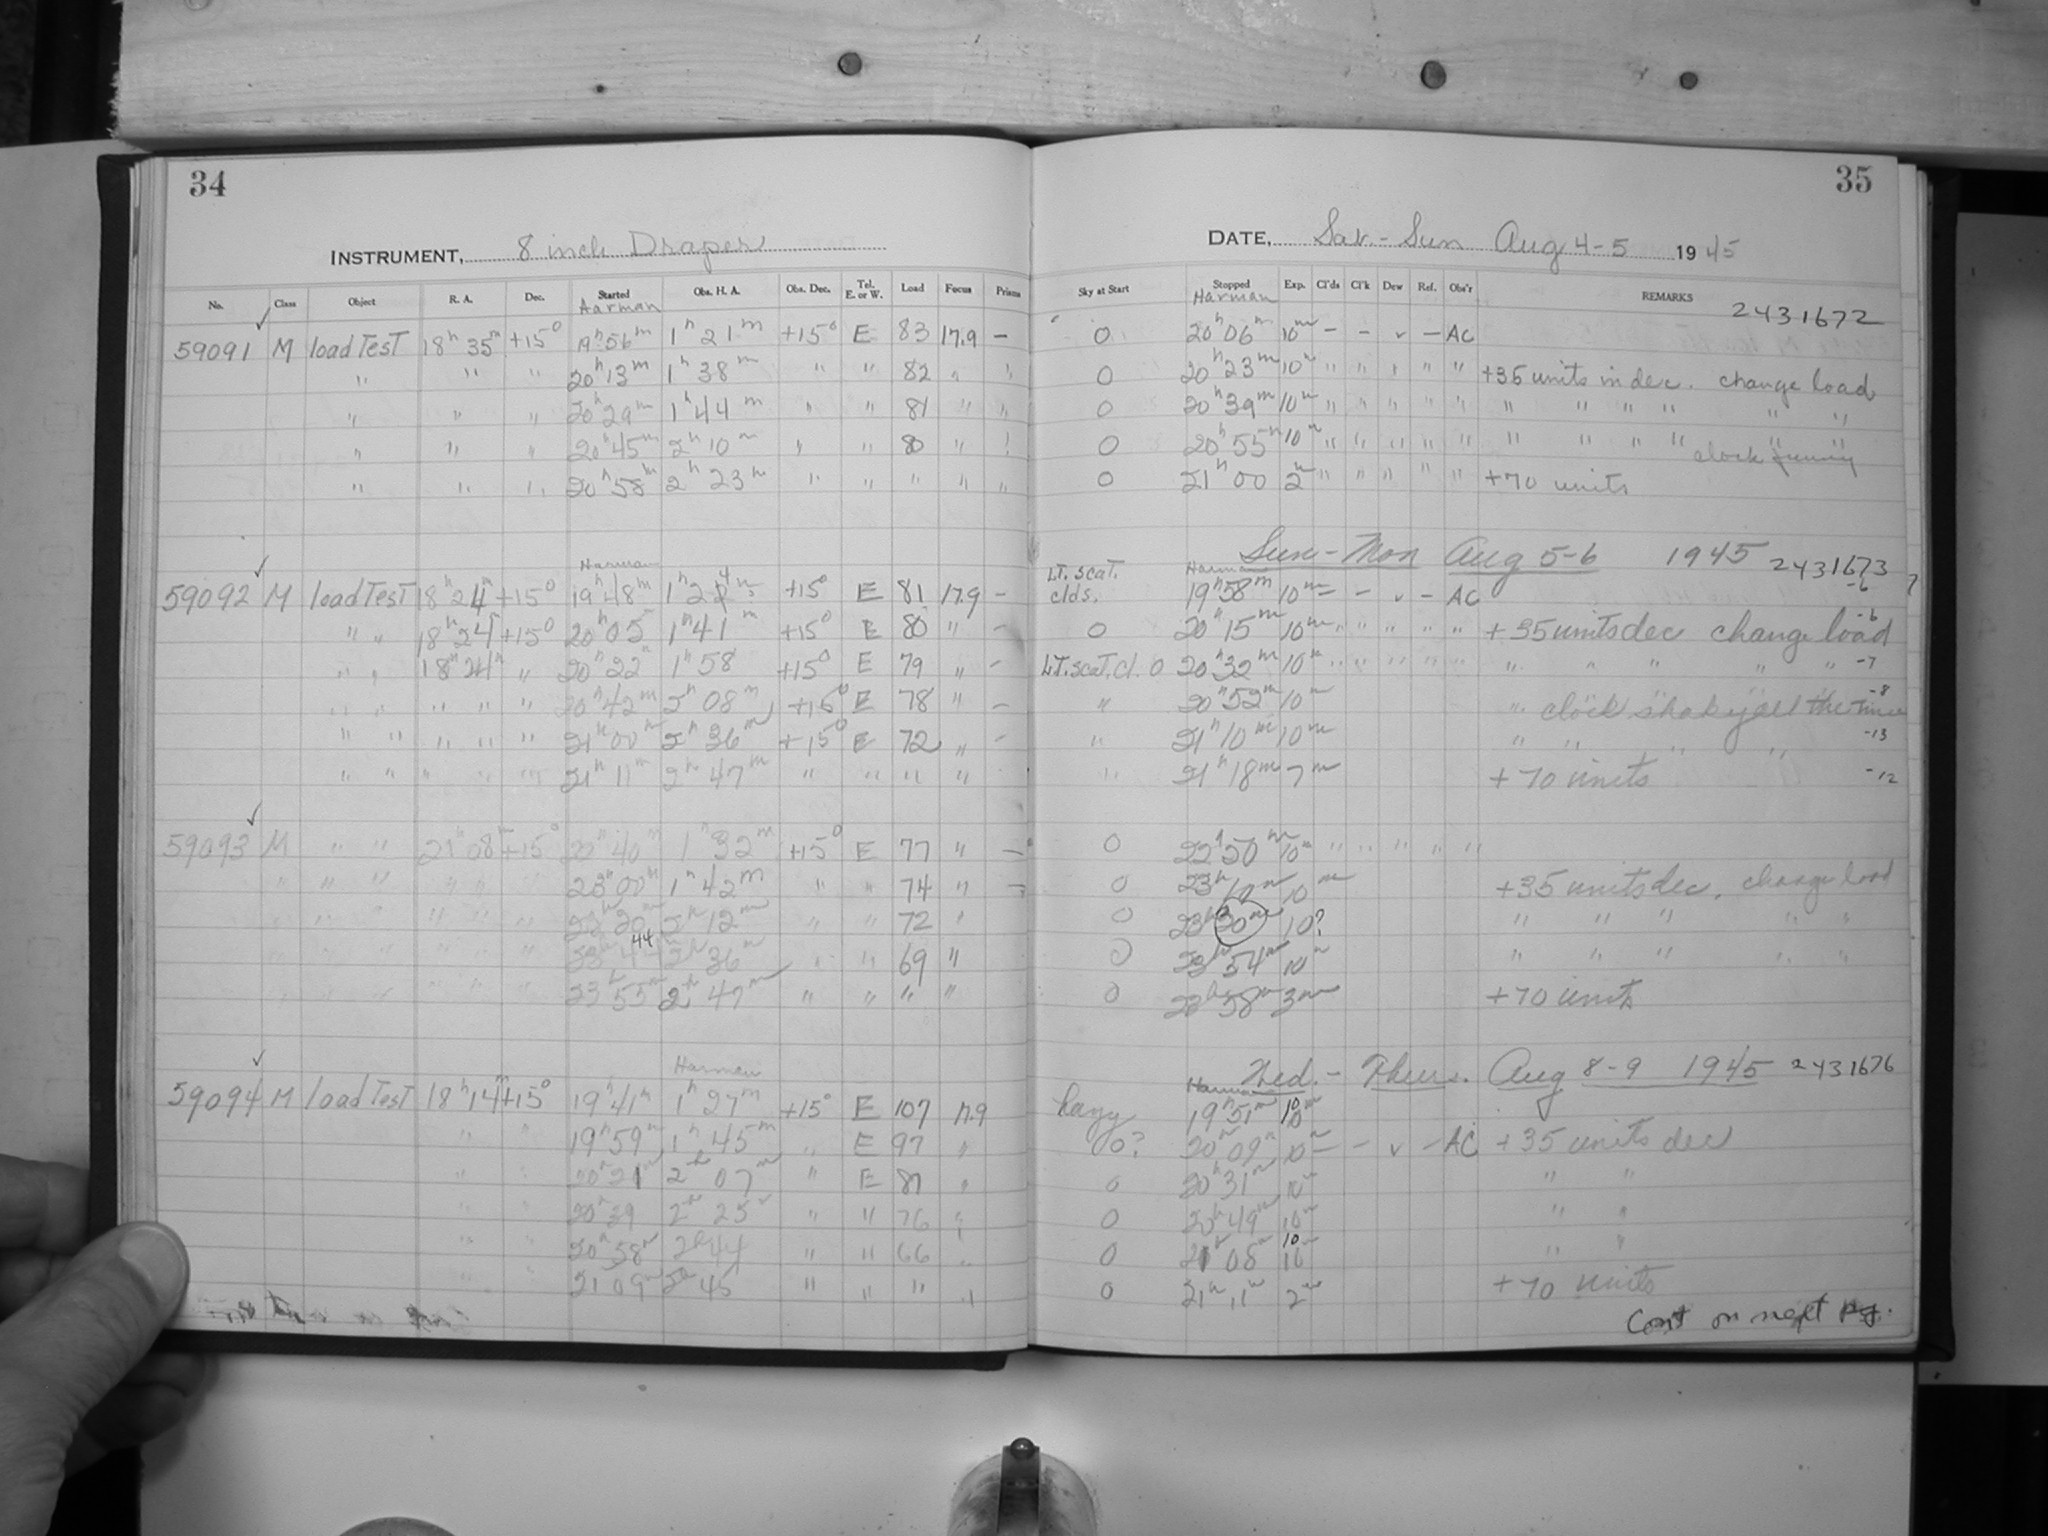 34
INSTRUMENT, 8 inch Draper
No. Class Object R. A. Dec. Started Obs. H. A. Obs. Dec. Tel. E. or W. Load Focus Prisms
Harman
59091 M load Test 18h 35m +15° 19h 56m 1h 21m +15° E 83 17.9 –
" " " 20h 13m 1h 38m " " 82 " "
" " " 20h 29m 1h 44m " " 81 " "
" " " 20h 45m 2h 10m " " 80 " "
" " " 20h 58m 2h 23m " " " " "
Harman
59092 M load Test 18h 24m +15° 19h 48m 1h 24m +15° E 81 17.9 –
" " 18h 24 +15° 20h 05 1h 41m +15° E 80 " –
" " 18h 24m " 20h 22m 1h 58 +15° E 79 " –
" " " " " 20h 42m 2h 08m +15° E 78 " –
" " " " " 21h 00m 2h 36m +15° E 72 " –
" " " " " 21h 11m 2h 47m " " " " –
59093 M " " 21h 08m +15° 22h 40m 1h 32m +15° E 77 " –
" " " " " " 23h 00m 1h 42m " " 74 " –
" " " " " " 2h 12m " " 72 "
" " " " " " 23h 44 2h 36m " " 69 "
" " " " " " 23h 55m 2h 47m " " " "
Harman
59094 M load Test 18h 14m +15° 19h 41m 1h 27m +15° E 107 17.9
" " 19h 59m 1h 45m " E 97 "
" " 20h 21m 2h 07m " E 87 "
" " 20h 39 2h 25m " " 76 "
" " 20h 58m 2h 44 " " 66 "
" " 21h 09m 2h 45 " " " "
35
DATE, Sat.-Sun Aug 4-5 1945
Sky at Start Stopped Exp. Cl'ds Cl'k Dew Ref. Obs'r REMARKS
Harman 2431672
0 20h 06m 10m – – v – AC
0 20h 23m 10m " " " " " +35 units in dec. change load
0 20h 39m 10m " " " " " " " " " " "
0 20h 55m 10m " " " " " " " " " " "
clock funny
0 21h 00 2m " " " " " +70 units
Sun-Mon Aug 5-6 1945 2431673
LT. scat. clds. Harman 19h 58m 10m – – v – AC -6
0 20h 15m 10m " " " " " +35 units dec change load -6
LT. scat. cl. 0 20h 32m 10m " " " " " " " " " " -7
" 20h 52m 10m " clock shaky all the time -8
" 21h 10m 10m " " " " -13
" 21h 18m 7m +70 units -12
0 22h 50m 10m " " " " "
0 23h 10m 10m +35 units dec. change load
0 23h 30m 10? " " " " "
0 23h 54m 10m " " " " "
0 23h 58m 3m +70 units
Wed.- Thurs. Aug 8-9 1945 2431676
Harman
hazy 19h 51m 10m
0? 20h 09m 10m – – v – AC +35 units dec
0 20h 31m 10m " "
0 20h 49m 10m " "
0 21h 08m 10 " "
0 21h 11m 2m +70 units
Cont on next pg.